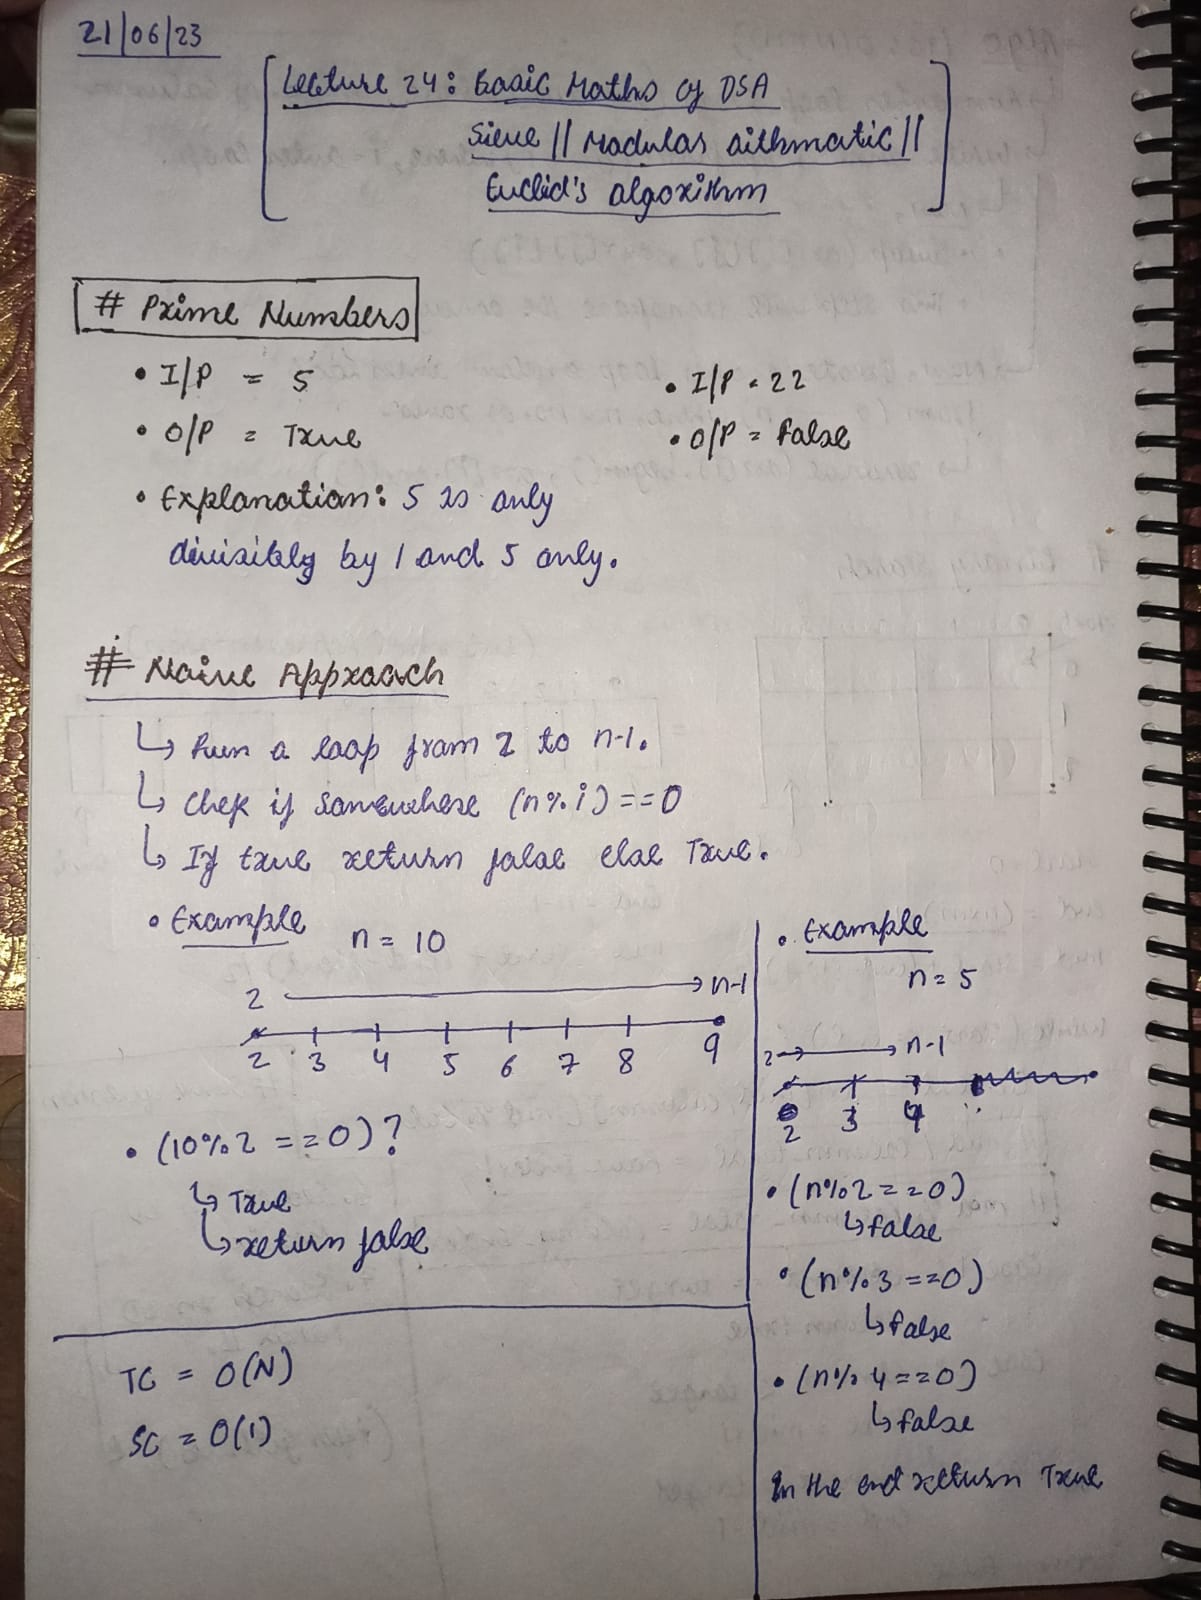 21/06/23
Lecture 24: Basic Maths of DSA
Sieve || Modular aithmatic ||
Euclid's algorithm
# Prime Numbers
• I/P = 5
• O/P = True
• Explanation: 5 is only
divisibly by 1 and 5 only.
• I/P = 22
• O/P = False
# Naive Approach
↳ Run a loop from 2 to n-1.
↳ Chek if somewhere (n%i)==0
↳ If true return false else True.
• Example n = 10
2 → n-1
2 3 4 5 6 7 8 9
• (10%2 ==0)?
↳ True
↳ return false
TC = O(N)
SC = O(1)
• Example
n = 5
2 → n-1
2 3 4
• (n%2==0)
↳ False
• (n%3==0)
↳ False
• (n%4==0)
↳ False
In the end return True